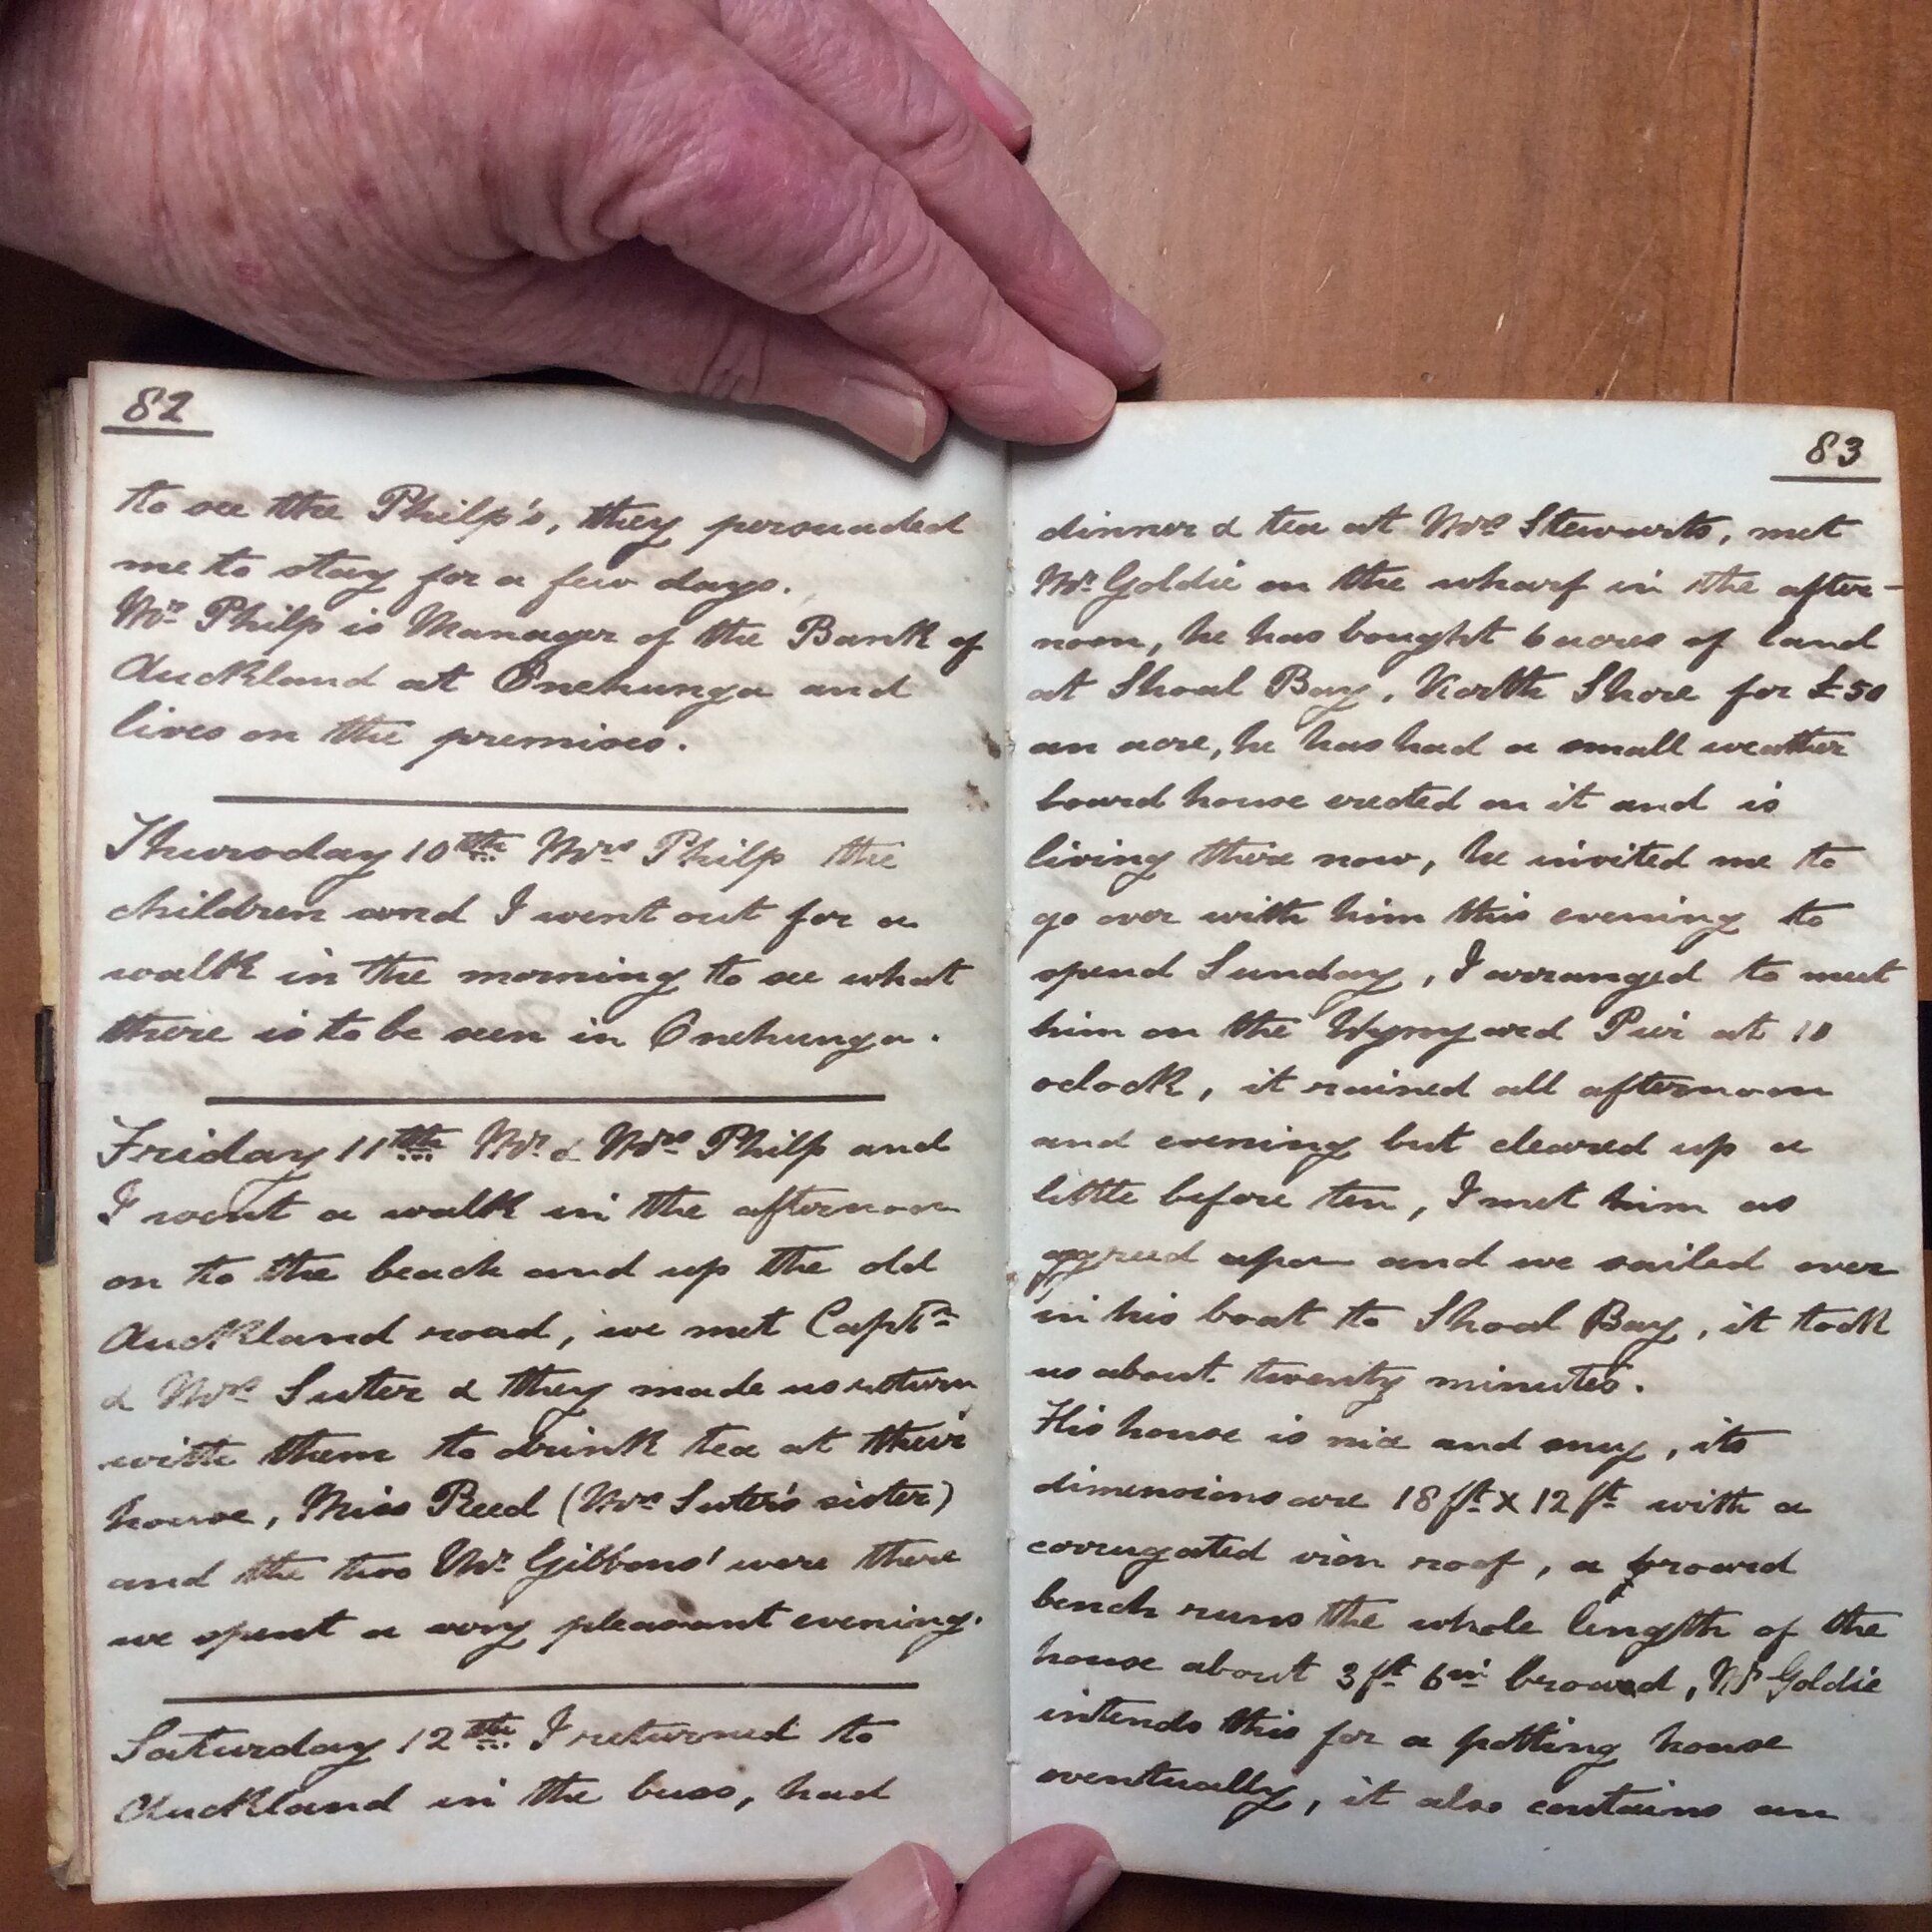 82
to see the Philp's, they persuaded
me to stay for a few days.
Mr. Philp is Manager of the Bank of
Auckland at Onehunga and
lives on the premises.
Thursday 10th Mrs Philp the
children and I went out for a
walk in the morning to see what
there is to be seen in Onehunga.
Friday 11th Mr. & Mrs Philp and
I went a walk in the afternoon
on to the beach and up the old
Auckland road, we met Captn
& Mrs Suter & they made us return
with them to drink tea at their
house, Miss Reed (Mrs Suter's sister)
and the two Mr. Gibbons' were there
we spent a very pleasant evening.
Saturday 12th I returned to
Auckland in the buss, had
83
dinner & tea at Mrs Stewarts, met
Mr. Goldie on the wharf in the after-
noon, he has bought 6 acres of land
at Shoal Bay, North Shore for £50
an acre, he has had a small weather
board house erected on it and is
living there now, he invited me to
go over with him this evening to
spend Sunday, I arranged to meet
him on the Wynyard Pier at 10
oclock, it rained all afternoon
and evening but cleared up a
little before ten, I met him as
aggreed upon and we sailed over
in his boat to Shoal Bay, it took
us about twenty minutes.
His house is nice and snug, its
dimensions are 18 ft x 12 ft with a
corrugated iron roof, a broard
bench runs the whole length of the
house about 3 ft 6 in broard, Mr Goldie
intends this for a potting house
eventually, it also contains an